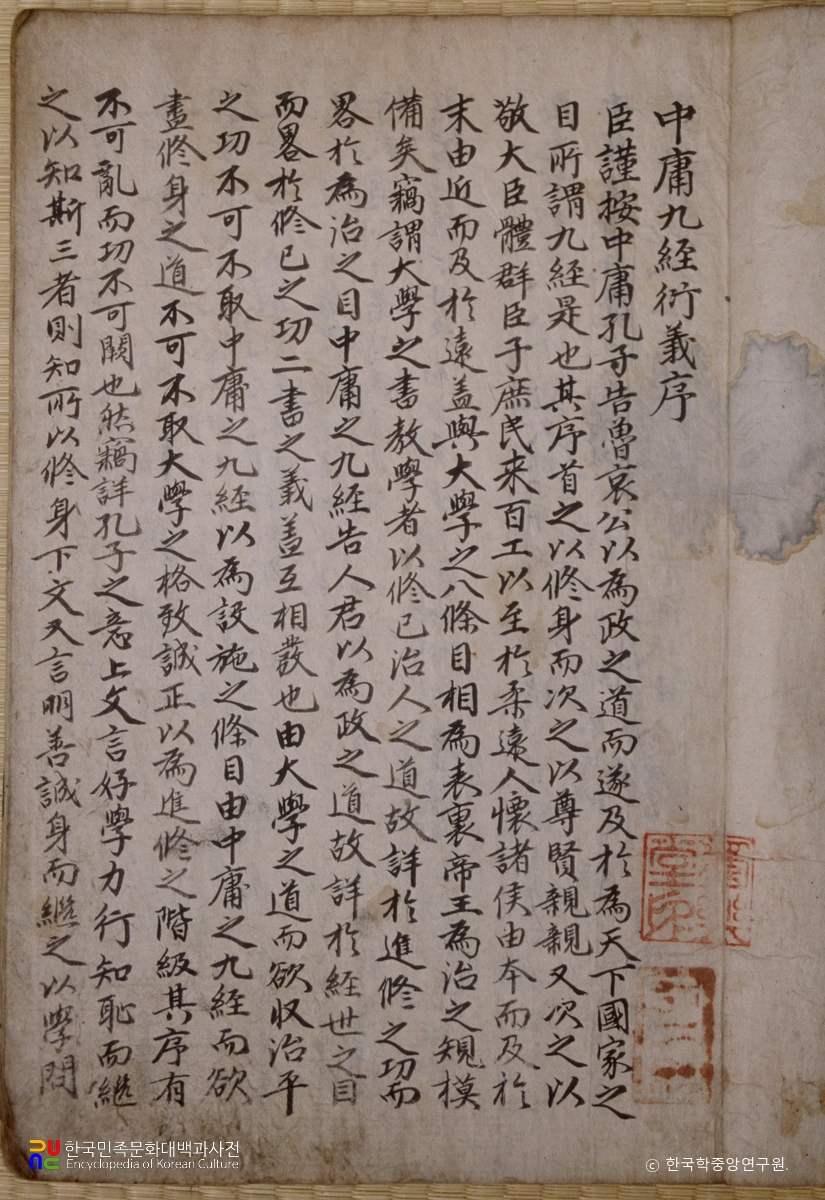 中庸九經衍義序
臣謹按中庸孔子告魯哀公以為政之道而遂及於為天下國家之
目所謂九經是也其序首之以修身而次之以尊賢親親又次之以
敬大臣體群臣子庶民来百工以至於柔遠人懷諸侯由本而及於
末由近而及於遠盖與大學之八條目相為表裏帝王為治之規模
備矣竊謂大學之書教學者以修己治人之道故詳於進修之功而
畧於為治之目中庸之九經告人君以為政之道故詳於經世之目
而畧於修己之功二書之義盖互相發也由大學之道而欲收治平
之功不可不取中庸之九經以為設施之條目由中庸之九經而欲
盡修身之道不可不取大學之格致誠正以為進修之階級其序有
不可亂而功不可闕也然竊詳孔子之意上文言好學力行知恥而繼
之以知斯三者則知所以修身下文又言明善誠身而繼之以學問
한국민족문화대백과사전
Encyclopedia of Korean Culture
ⓒ 한국학중앙연구원.